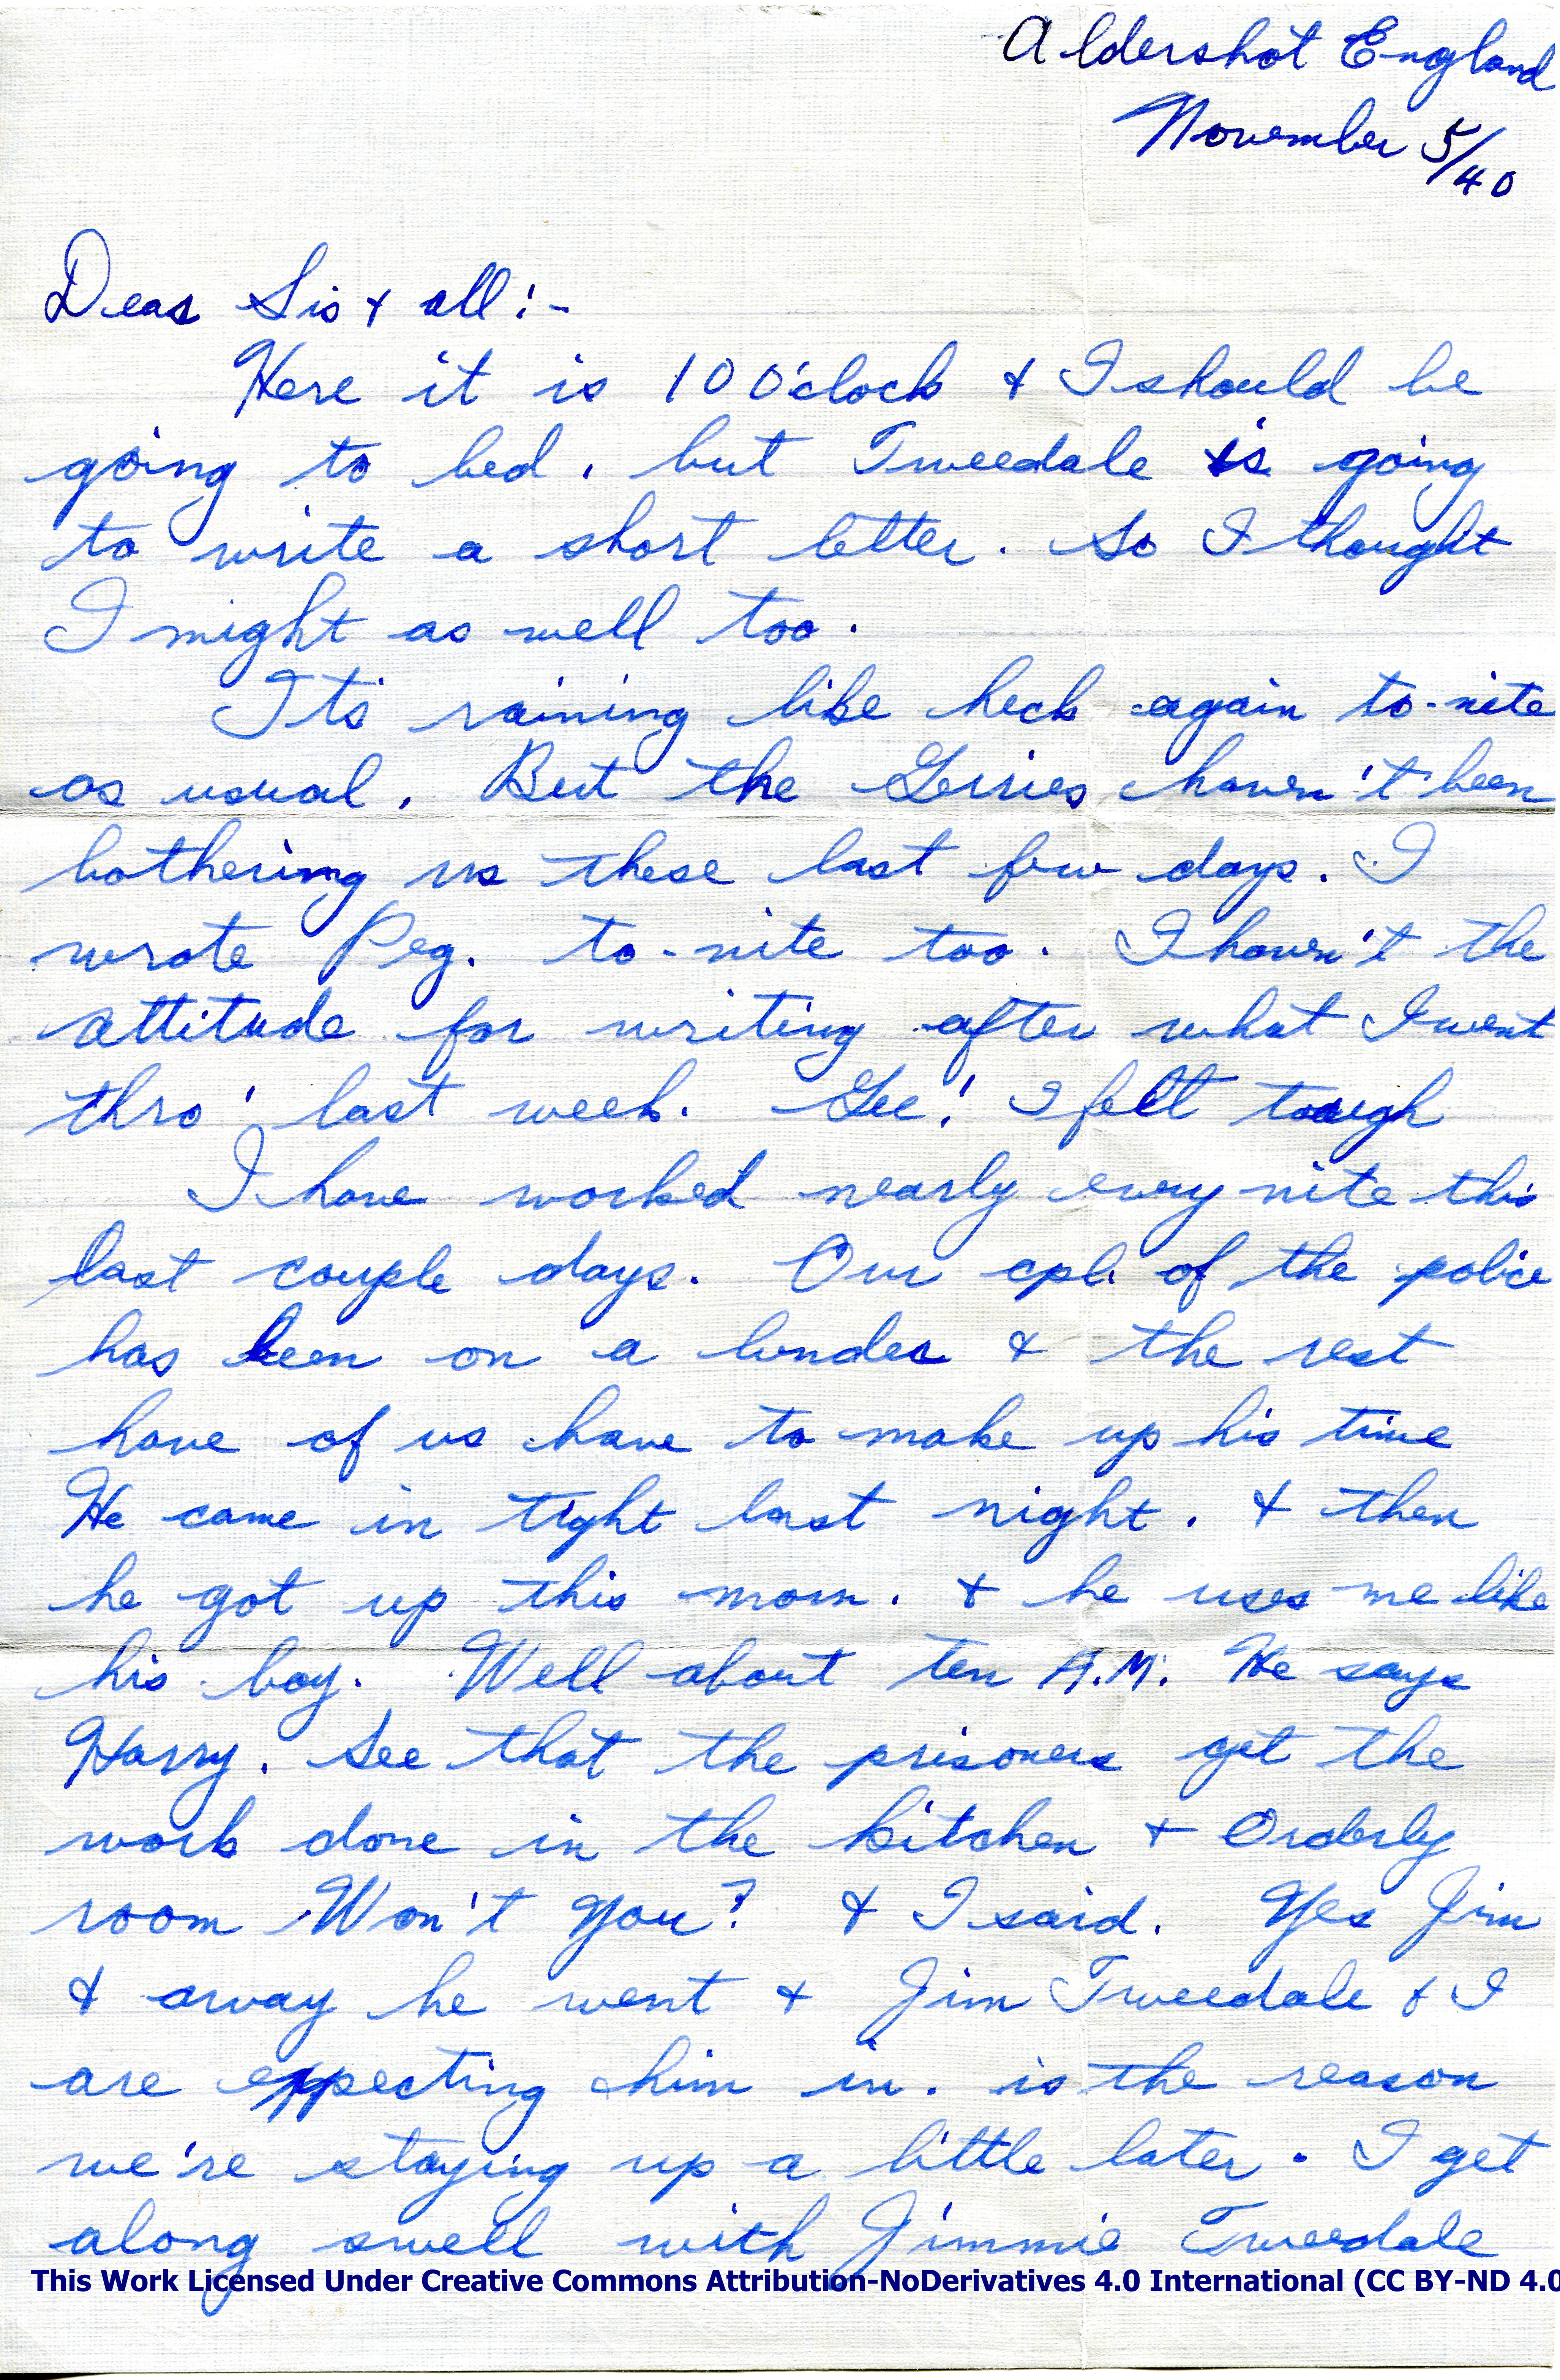 Aldershot England
November 5/40
Dear Sis & all:-
Here it is 10 O'clock & I should be
going to bed. but Tweedale is going
to write a short letter. So I thought
I might as well too.
It's raining like heck again to-nite
as usual. But the Gerries haven't been
bothering us these last few days. I
wrote Peg. to-nite too. I haven't the
attitude for writing after what I went
thro' last week. Gee! I felt tough
I have worked nearly every nite this
last couple days. Our cpl. of the police
has been on a bender & the rest
have of us have to make up his time
He came in tight last night. & then
he got up this morn. & he uses me like
his boy. Well about ten A.M. He says
Harry. See that the prisoners get the
work done in the kitchen & Orderly
room Won't you? & I said. Yes Jim
& away he went & Jim Tweedale & I
are expecting him in. is the reason
we're staying up a little later. I get
along swell with Jimmie Tweedale
This Work Licensed Under Creative Commons Attribution-NoDerivatives 4.0 International (CC BY-ND 4.0